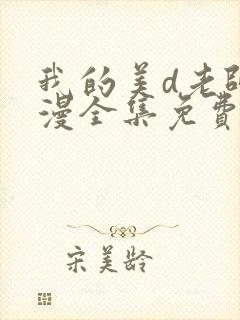 我的美d老師
漫全集免費
宋美龄